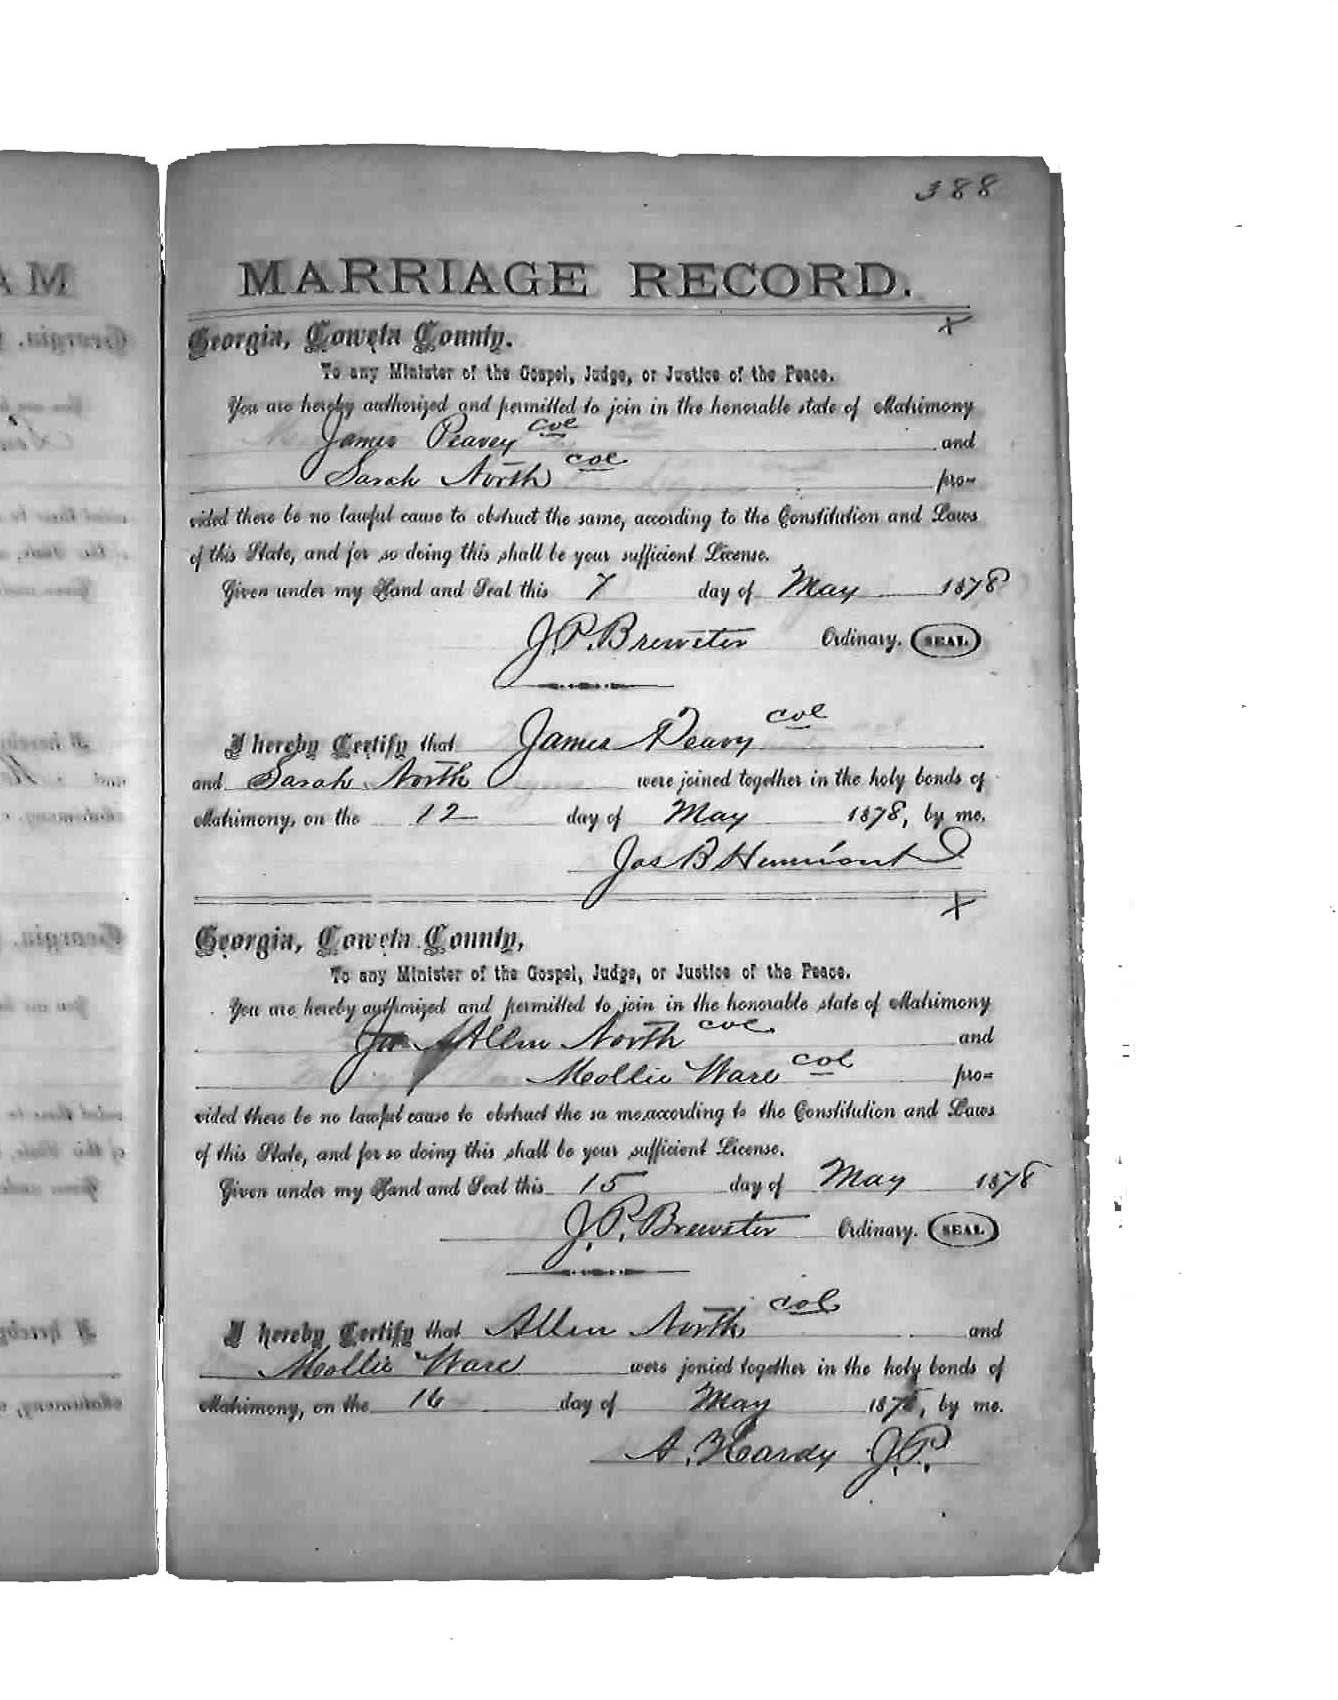 388
MARRIAGE RECORD.
Georgia, Coweta County.
To any Minister of the Gospel, Judge, or Justice of the Peace.
You are hereby authorized and permitted to join in the honorable state of Matrimony
James Peavey col and
Sarah North col pro=
vided there be no lawful cause to obstruct the same, according to the Constitution and Laws
of this State, and for so doing this shall be your sufficient License.
Given under my Hand and Seal this 7 day of May 1878
J.P. Brewster Ordinary. SEAL
I hereby Certify that James Peavy col
and Sarah North were joined together in the holy bonds of
Matrimony, on the 12 day of May 1878, by me.
Jas B
Georgia, Coweta County,
To any Minister of the Gospel, Judge, or Justice of the Peace.
You are hereby authorized and permitted to join in the honorable state of Matrimony
Allen North col and
Mollie Ware col pro=
vided there be no lawful cause to obstruct the sa me, according to the Constitution and Laws
of this State, and for so doing this shall be your sufficient License.
Given under my Hand and Seal this 15 day of May 1878
J.P. Brewster Ordinary. SEAL
I hereby Certify that Allen North col and
Mollie Ware were jonied together in the holy bonds of
Matrimony, on the 16 day of May 1878, by me.
A. Hardy J.P.